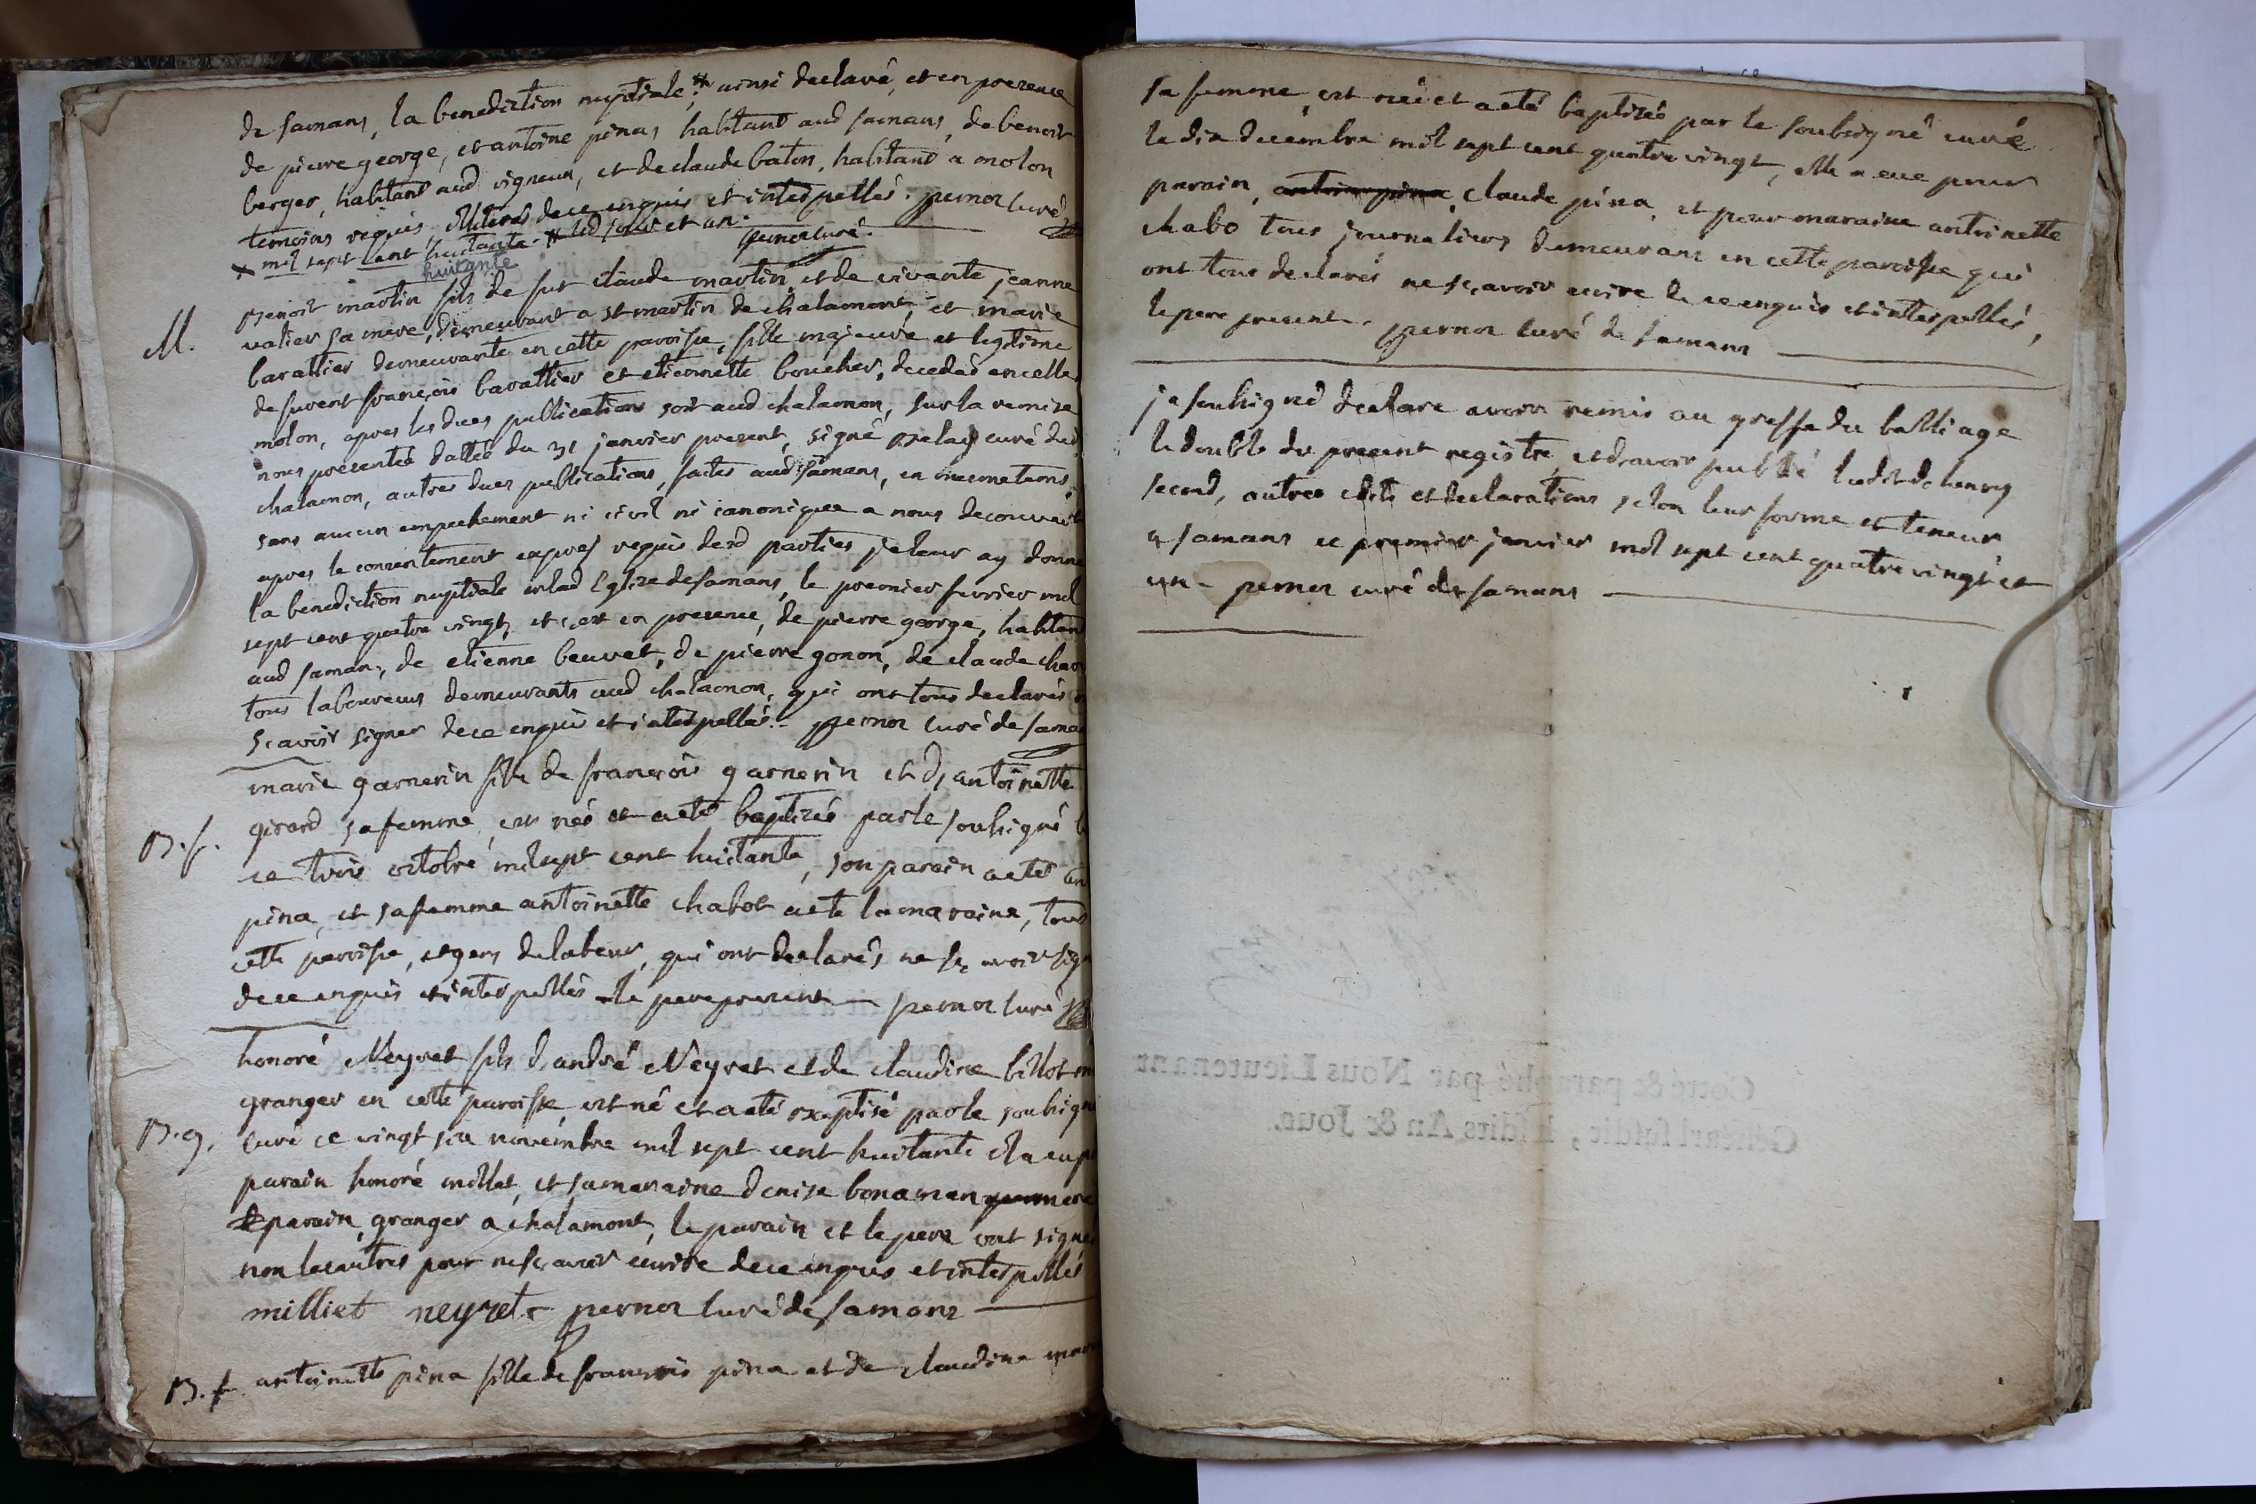 de samans, la benediction nuptiale, * ainsi declaré, et en presence
de pierre george, et antoine pina, habitant aud samans, de benoit
berger, habitant aud vigneux, et de claude baton, habitant a molon
temoins requis, illiterés de ce enquis et interpellés. pernon curé
* mil sept cent huitante. * led jour et an. pernon curé.
huitante
M.
benoit martin fils de fut claude martin, et de vivante jeanne
valier sa mere, demeurant a st martin de chalamont, et marie
barattier demeurante en cette paroisse, fille majeure et legitime
de furent françois barattier et etiennette boucher, decedés en celle
molon, apres les dues publications soit aud chalamon, sur la remise
nous presentée dattée du 31 janvier present, signé curé dud
chalamon, autres dues publications, faites aud samans, en
sans aucun empechement ni civil ni canonique a nous decouvert
apres le consentement expres requis desd parties je leur ay donné
la benediction nuptiale en lad Eglise de samans, le premier fevrier mil
sept cent quatre vingt, et c'est en presence, de pierre george, habitant
aud samans, de etienne beuvet, de pierre gonon, de claude
tous laboureurs demeurants aud chalamon, qui ont tous declarés
scavoir signer de ce enquis et interpellés. pernon curé de samans
B. f.
marie garnerin fille de françois garnerin et d'antoinette
girand sa femme, est née et a eté baptizée par le soubsigné
ce trois octobre mil sept cent huitante, son parain a eté
pina, et sa femme antoinette chabot a eté la maraine, tous
cette paroisse, et gens de labeur, qui ont declarés ne scavoir
de ce enquis et interpellés le pere present pernon curé
B. g.
honoré Neyret fils d'andré Neyret et de claudine billot
granger en cette paroisse, est né et a eté baptisé par le soubsigné
curé ce vingt six novembre mil sept cent huitante il a eu
parain honoré millet, et sa maraine denise bonaman
parain, granger a chalamont, le parain et le pere ont signé
non les autres pour ne scavoir ecrire de ce enquis et interpellés
milliet neyret pernon curé de samans
B. f. antoinette pina fille de françois pina et de claudine
sa femme, est née et a eté baptizée par le soubsigné curé
le dix decembre mil sept cent quatre vingt, elle a eue pour
parain, antoine pina, claude pina, et pour maraine antoinette
chabo tous journaliers demeurans en cette paroisse qui
ont tous declarés ne sçavoir ecrire de ce enquis et interpellés,
le pere present. pernon curé de samans
je soubsigné declare avoir remis au greffe du bailliage
le double du present registre, et d'avoir publié l'edit de henry
second, autres edits et declarations selon leur forme et teneur
a samans ce premier janvier mil sept cent quatre vingt et
un - pernon curé de samans
Coté & paraphé par Nous Lieutenant
Général susdit, lesdits An & Jour.